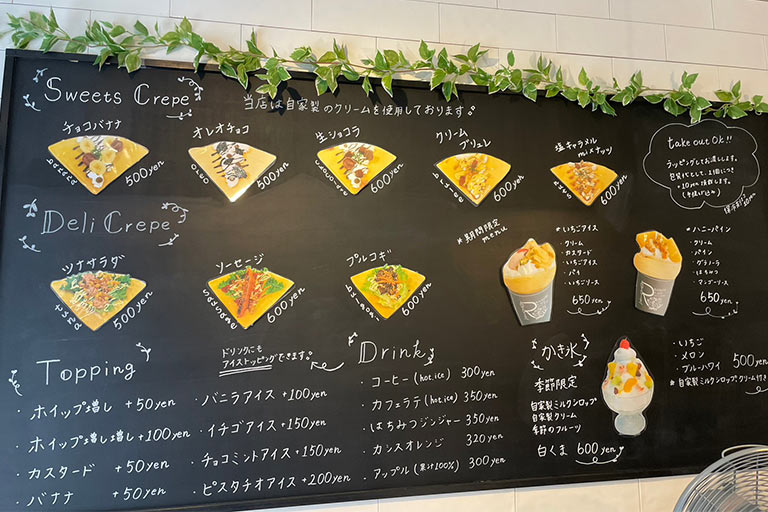 Sweets Crepe
当店は自家製のクリームを使用しております。
チョコバナナ
500yen
オレオチョコ
OREO
500yen
生ショコラ
600yen
クリーム
ブリュレ
600yen
塩キャラメル
mixナッツ
600yen
take out OK!!
ラッピングしてお渡しします。
Deli Crepe
ツナサラダ
500yen
ソーセージ
sausage
600yen
プルコギ
600yen
*期間限定
menu
*いちごアイス
・クリーム
・カスタード
・いちごアイス
・パイ
・いちごソース
650yen
*ハニーパイン
・クリーム
・パイン
・グラノーラ
・はちみつ
・マンゴーソース
650yen
Topping
・ホイップ増し +50yen
・ホイップ増し増し +100yen
・カスタード +50yen
・バナナ +50yen
ドリンクにも
アイストッピングできます。
・バニラアイス +100yen
・イチゴアイス +150yen
・チョコミントアイス +150yen
・ピスタチオアイス +200yen
Drink
・コーヒー (hot.ice) 300yen
・カフェラテ (hot.ice) 350yen
・はちみつジンジャー 350yen
・カシスオレンジ 320yen
・アップル (果汁100%) 300yen
かき氷
季節限定
自家製ミルクシロップ
自家製クリーム
季節のフルーツ
白くま 600yen
・いちご
・メロン
・ブルーハワイ 500yen
*自家製ミルクシロップクリーム付き